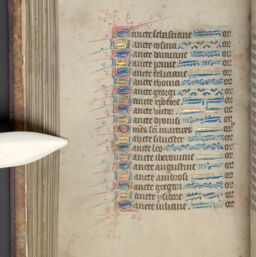 Sancte sebastiane or
Sancte cosma or
Sancte damiane or
Sancte prime or
Sancte feliciane or
Sancte thoma or
Sancte georgi or
Sancte victor or
Sancte dyonisi or
Omēs sci martires or
Sancte silvester or
Sancte leo or
Sancte iheronime or
Sancte augustine or
Sancte ambrosi or
Sancte gregori or
Sancte ysidore or
Sancte iuliane or